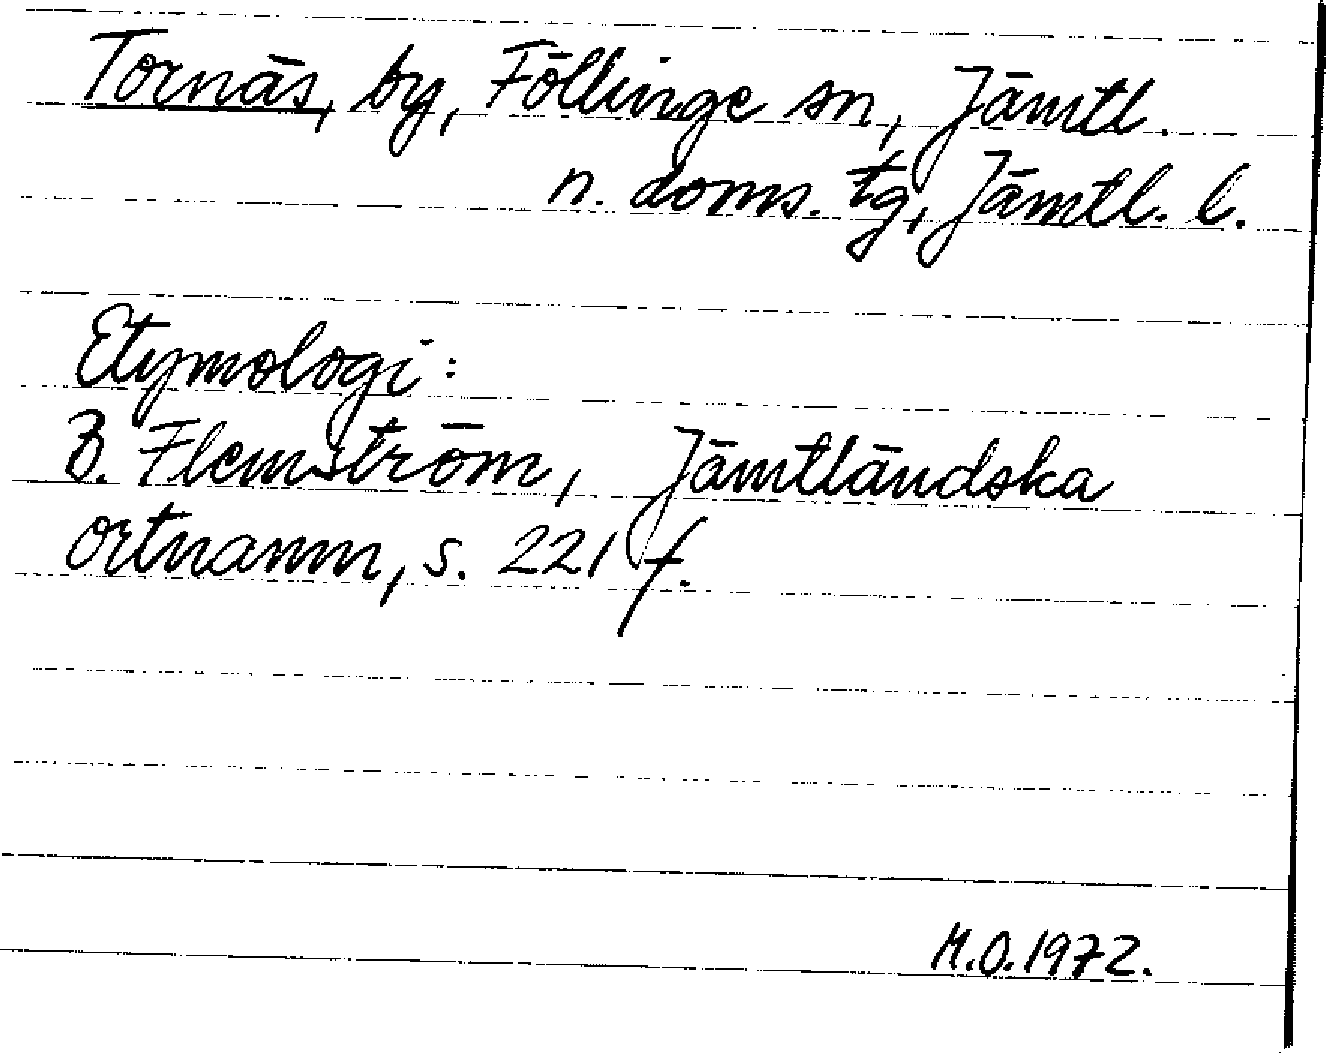 Tornäs, by, Föllinge sn, Jämtl.
n. doms. tg, Jämtl. l.
Etymologi:
B. Flemström, Jämtländska
ortnamn, s. 221 f.
M.O. 1972.